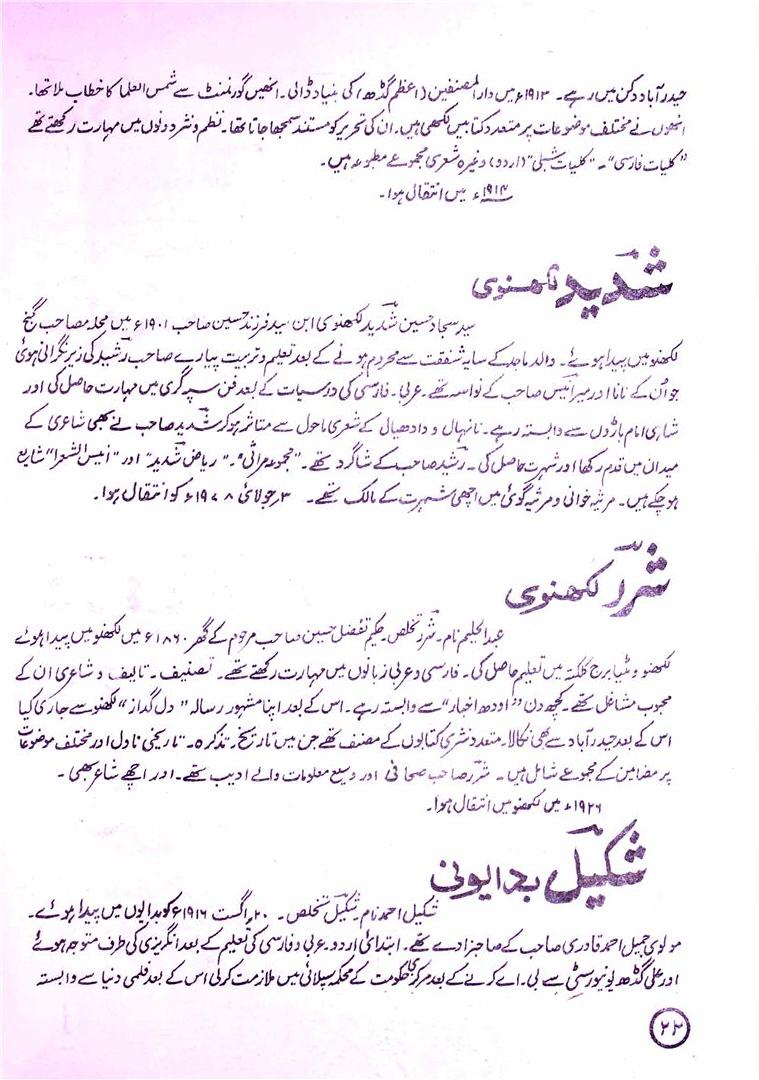 حیدرآباد دکن میں رہے۔ ۱۹۱۳ء میں دارالمصنفین (اعظم گڈھ) کی بنیاد ڈالی۔ انھیں گورنمنٹ سے شمس العلما کا خطاب ملا تھا۔
انھوں نے مختلف موضوعات پر متعدد کتابیں لکھی ہیں۔ ان کی تحریر کو مستند سمجھا جاتا تھا۔ نظم و نثر دونوں میں مہارت رکھتے تھے
"کلیات فارسی"۔ "کلیات شبلی" (اردو) وغیرہ شعری مجموعے مطبوعہ ہیں۔
۱۹۱۴ء میں انتقال ہوا۔
شدید لکھنوی
سید سجاد حسین شدید لکھنوی ابن سید فرزند حسین صاحب ۱۹۰۱ء میں محلہ مصاحب گنج
لکھنو میں پیدا ہوئے۔ والد ماجد کے سایہ شفقت سے محروم ہونے کے بعد تعلیم و تربیت پیارے صاحب رشید کی زیر نگرانی ہوئی
جو اُن کے نانا اور میر انیس صاحب کے نواسہ تھے۔ عربی۔ فارسی کی درسیات کے بعد فن سپہ گری میں مہارت حاصل کی اور
شاہی امام باڑوں سے وابستہ رہے۔ نانہال و دادھیال کے شعری ماحول سے متاثر ہو کر شدید صاحب نے بھی شاعری کے
میدان میں قدم رکھا اور شہرت حاصل کی۔ رشید صاحب کے شاگرد تھے۔ "مجموعہ مراثی"۔ "ریاض شدید" اور "انیس الشعرا" شایع
ہو چکے ہیں۔ مرثیہ خوانی و مرثیہ گوئی میں اچھی شہرت کے مالک تھے۔ ۳؍جولائی ۱۹۷۸ء کو انتقال ہوا۔
شرر لکھنوی
عبدالحلیم نام۔ شرر تخلص۔ حکیم تفضل حسین صاحب مرحوم کے گھر ۱۸۶۰ء میں لکھنو میں پیدا ہوئے
لکھنو و مٹیا برج کلکتہ میں تعلیم حاصل کی۔ فارسی و عربی زبانوں میں مہارت رکھتے تھے۔ تصنیف۔ تالیف و شاعری ان کے
محبوب مشاغل تھے۔ کچھ دن "اودھ اخبار" سے وابستہ رہے۔ اس کے بعد اپنا مشہور رسالہ "دل گداز" لکھنو سے جاری کیا
اس کے بعد حیدرآباد سے بھی نکالا۔ متعدد نثری کتابوں کے مصنف تھے جن میں تاریخ۔ تذکرہ۔ تاریخی ناول اور مختلف موضوعات
پر مضامین کے مجموعے شامل ہیں۔ شرر صاحب صحافی اور وسیع معلومات والے ادیب تھے۔ اور اچھے شاعر بھی۔
۱۹۲۶ء میں لکھنو میں انتقال ہوا۔
شکیل بدایونی
شکیل احمد نام۔ شکیل تخلص۔ ۲۰؍اگست ۱۹۱۶ء کو بدایوں میں پیدا ہوئے۔
مولوی جمیل احمد قادری صاحب کے صاحبزادے تھے۔ ابتدائی اردو۔ عربی و فارسی کی تعلیم کے بعد انگریزی کی طرف متوجہ ہوئے
اور علی گڈھ یونیورسٹی سے بی۔اے کرنے کے بعد مرکزی حکومت کے محکمہ سپلائی میں ملازمت کر لی اس کے بعد فلمی دنیا سے وابستہ
۲۲